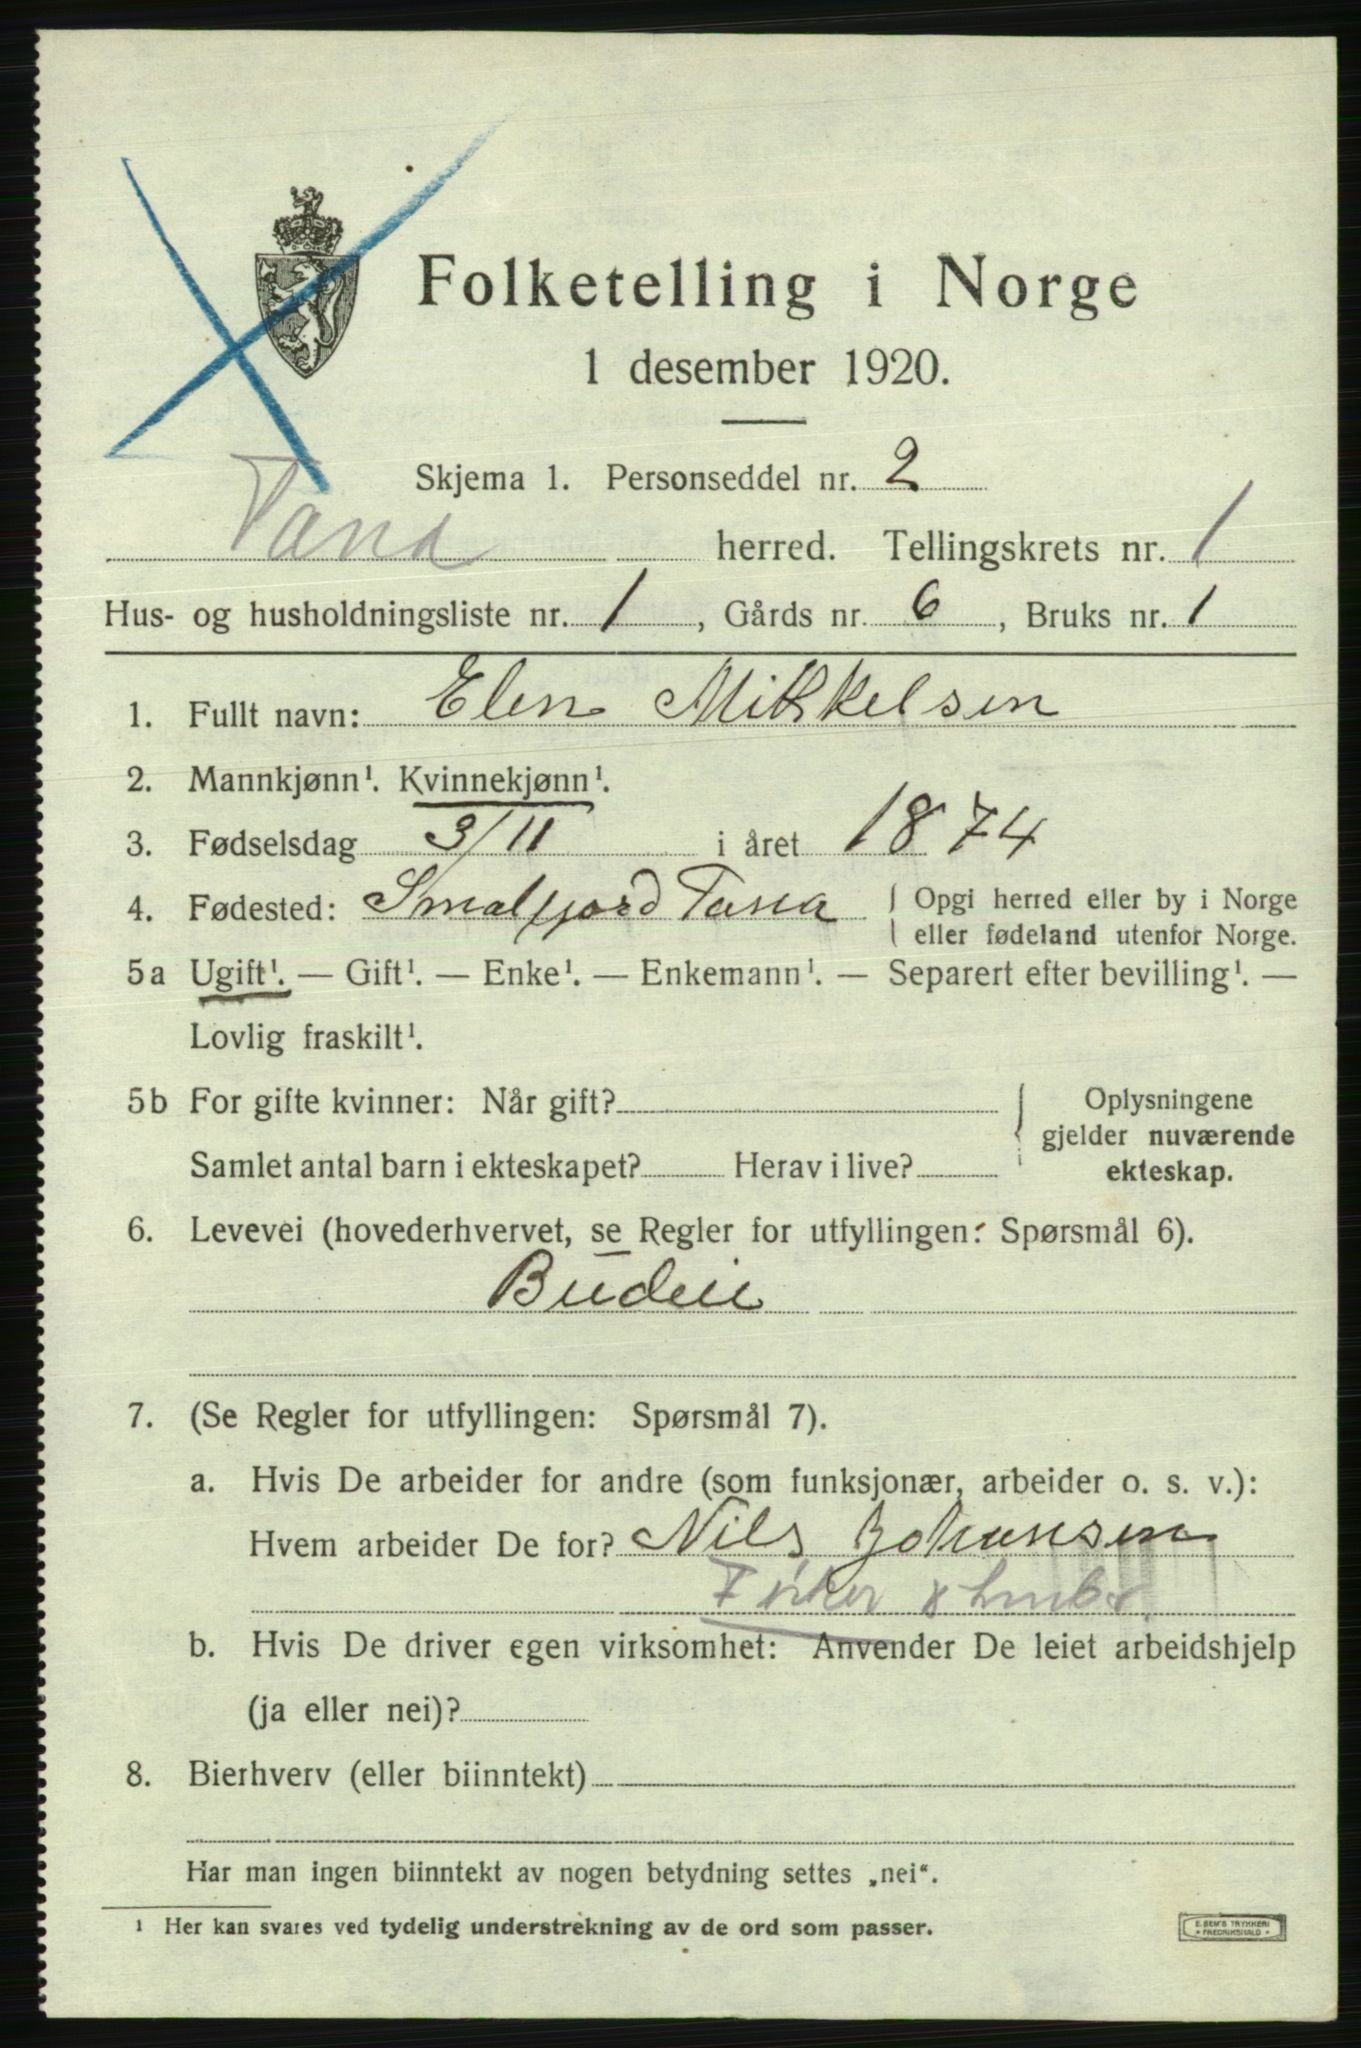 Folketelling i Norge
1 desember 1920.
Skjema 1. Personseddel nr. 2
Tana herred. Tellingskrets nr. 1
Hus- og husholdningsliste nr. 1, Gårds nr. 6, Bruks nr. 1
1. Fullt navn: Elen Mikkelsen
2. Mannkjønn¹. Kvinnekjønn¹.
3. Fødselsdag 3/11 i året 1874
4. Fødested: Smalfjord Tana { Opgi herred eller by i Norge
eller fødeland utenfor Norge.
5a Ugift¹. — Gift¹. — Enke¹. — Enkemann¹. — Separert efter bevilling¹. —
Lovlig fraskilt¹.
5b For gifte kvinner: Når gift?
Samlet antal barn i ekteskapet? Herav i live?
{ Oplysningene
gjelder nuværende
ekteskap.
6. Levevei (hovederhvervet, se Regler for utfyllingen: Spørsmål 6).
Budeie
7. (Se Regler for utfyllingen: Spørsmål 7).
a. Hvis De arbeider for andre (som funksjonær, arbeider o. s. v.):
Hvem arbeider De for? Nils Johansen
b. Hvis De driver egen virksomhet: Anvender De leiet arbeidshjelp
(ja eller nei)?
8. Bierhverv (eller biinntekt)
Har man ingen biinntekt av nogen betydning settes „nei“.
¹ Her kan svares ved tydelig understrekning av de ord som passer.
E. SEM'S TRYKKERI
• FREDRIKSHALD •